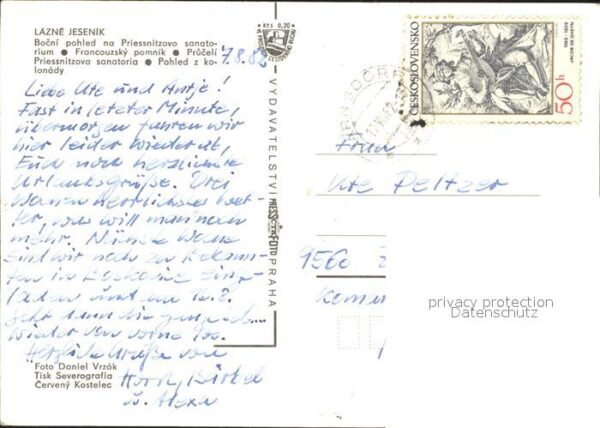 LÁZNĚ JESENÍK
Boční pohled na Priessnitzovo sanato-
rium ● Francouzský pomník ● Průčelí
Priessnitzova sanatoria ● Pohled z ko-
lonády
7.8.82
Liebe Ute und Antje!
Fast in letzter Minute,
übermorgen fahren wir
hier leider wieder ab,
Euch noch herzlichste
Urlaubsgrüße. Drei
Wochen herrlichstes Wet-
ter, was will man noch
mehr. Nächste Woche
sind wir noch zu Bekann-
ten in einge-
laden und am 16.8.
geht dann die ganze
wieder von vorne los.
Herzliche Grüße von
Horst, Bärbel
u. Alexa
Foto Daniel Vrzák
Tisk Severografia
Červený Kostelec
Kčs 0,20
VYDAVATELSTVÍ PRESSFOTO PRAHA
ČESKOSLOVENSKO
50h
JACOB DE GHEYN
1565-1629
Frau
Ute Peltzer
9560
privacy protection
Datenschutz